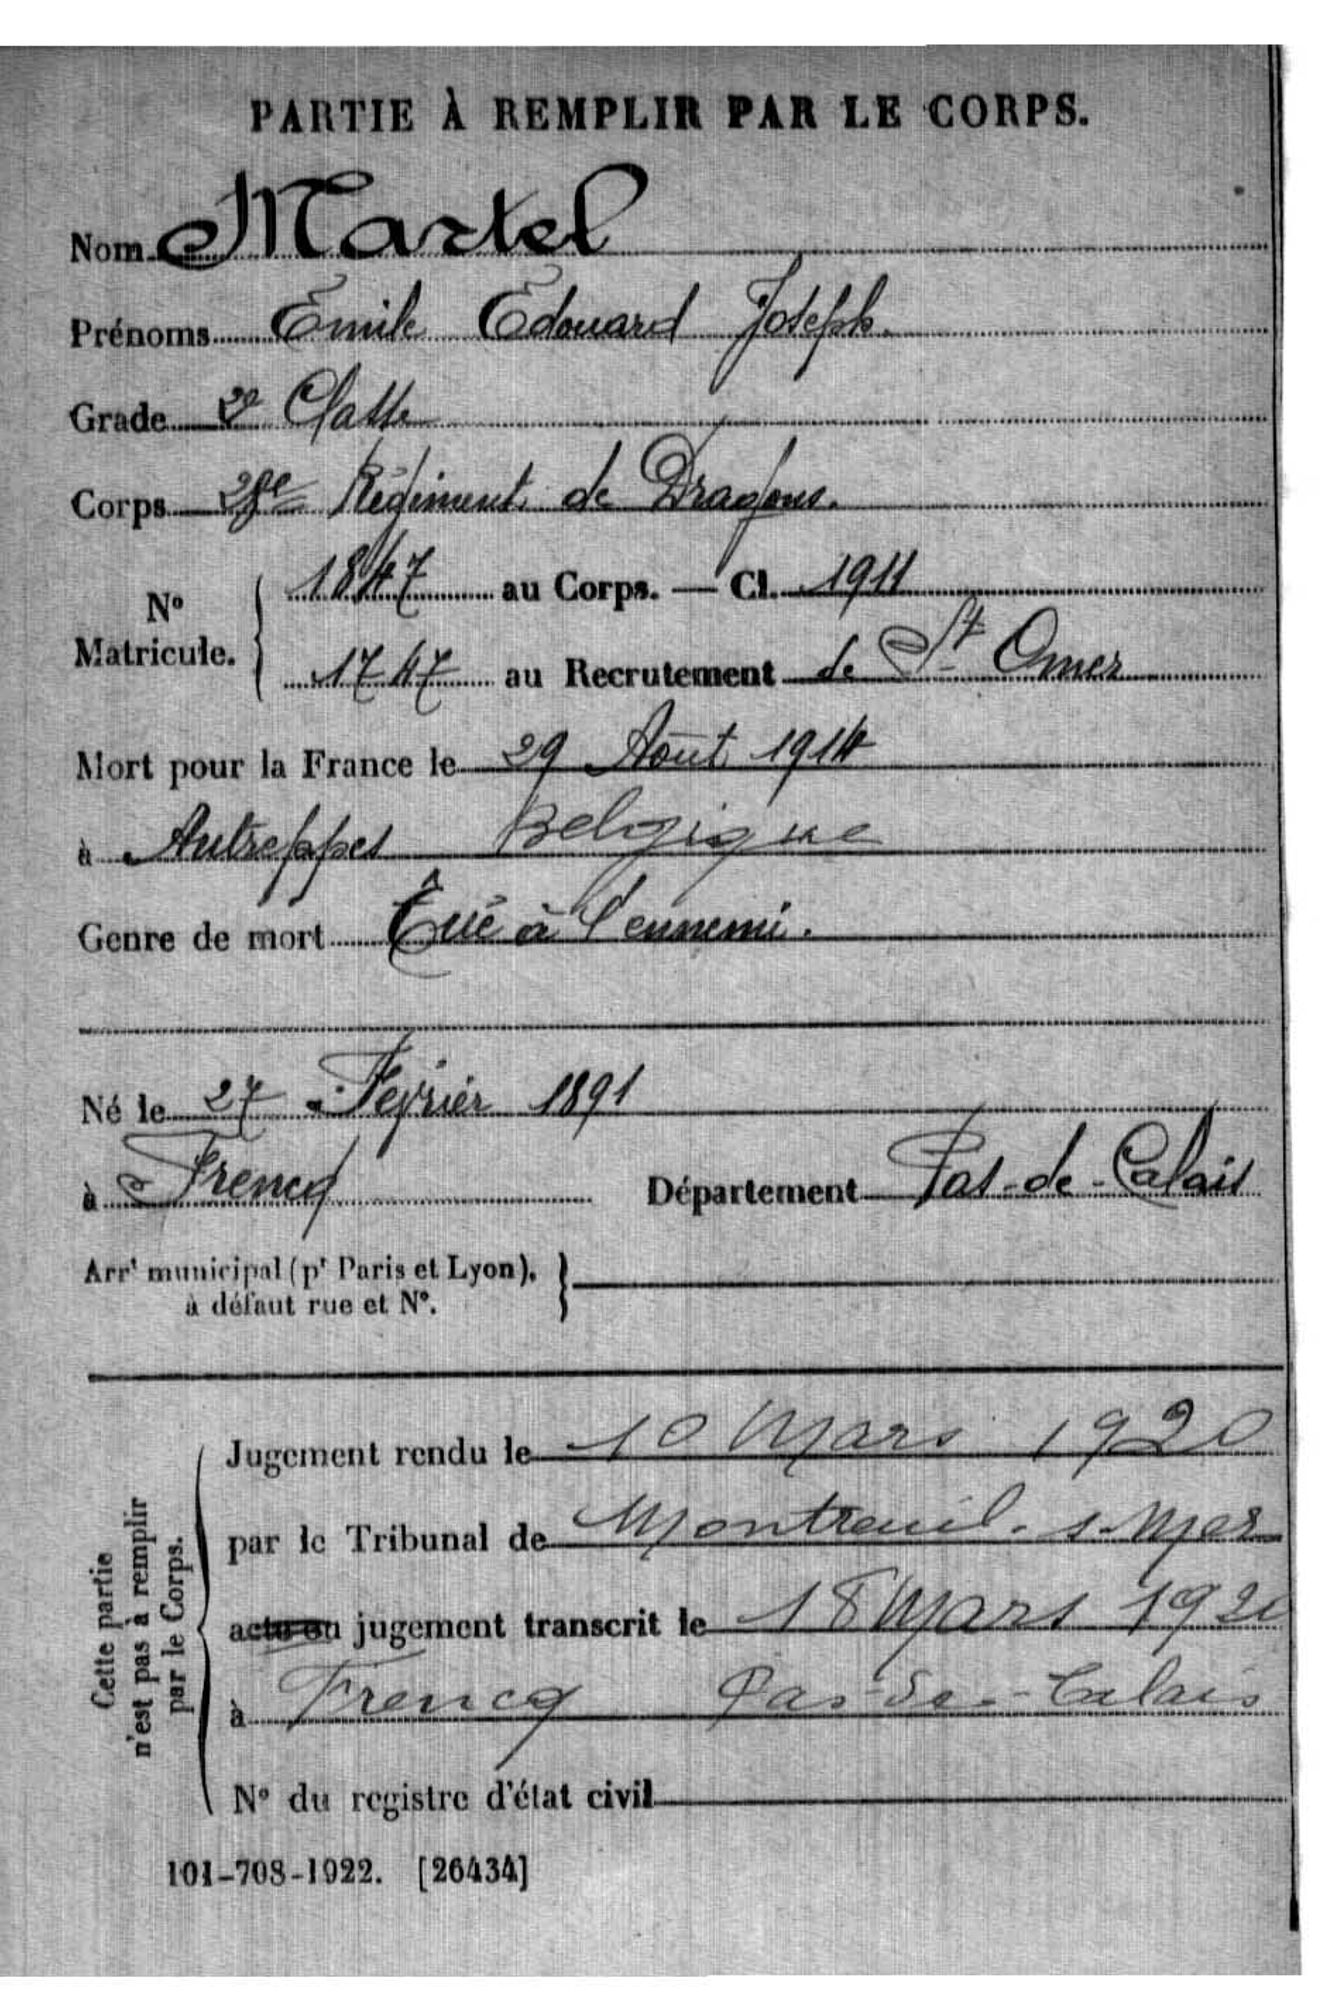 PARTIE À REMPLIR PAR LE CORPS.
Nom Martel
Prénoms Emile Edouard Joseph.
Grade 2e Classe
Corps 28e Régiment de Dragons.
No Matricule. { 1847 au Corps. — Cl. 1911
1747 au Recrutement de St Omer
Mort pour la France le 29 Août 1914
à Autreppes Belgique
Genre de mort Tué à l'ennemi.
Né le 27 Fevrier 1891
à Frencq Département Pas-de-Calais
Arrt municipal (pr Paris et Lyon), }
à défaut rue et No.
Cette partie
n'est pas à remplir
par le Corps.
Jugement rendu le 10 Mars 1920
par le Tribunal de Montreuil-s-Mer
acte ou jugement transcrit le 18 Mars 1920
à Frencq Pas-de-Calais
No du registre d'état civil
101-708-1922. [26434]